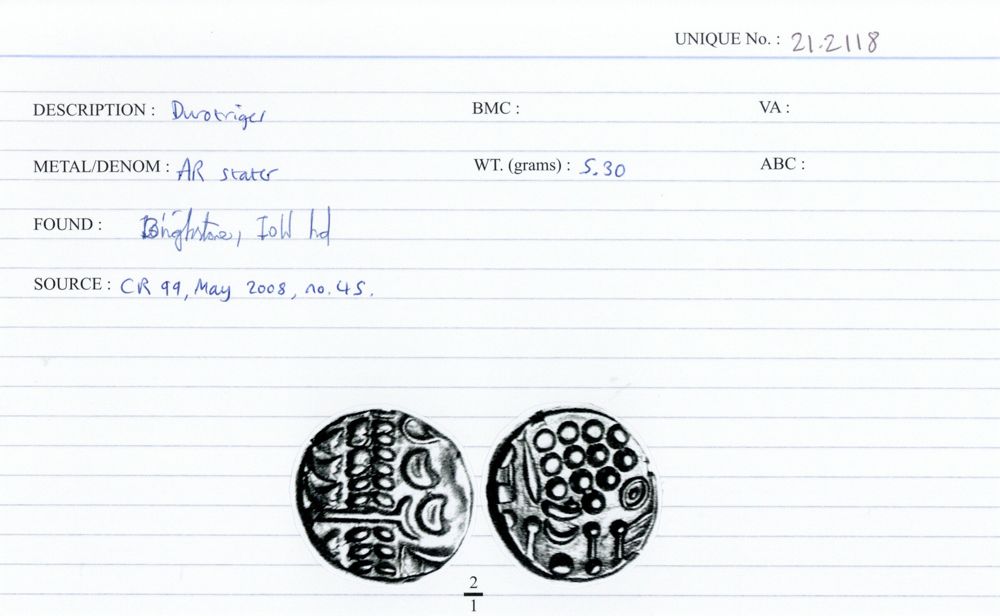 UNIQUE No. : 21.2118
DESCRIPTION : Durotriges BMC : VA :
METAL/DENOM : AR stater WT. (grams) : 5.30 ABC :
FOUND : Brighstone, IoW hd
SOURCE : CR 99, May 2008, no. 45.
2
1